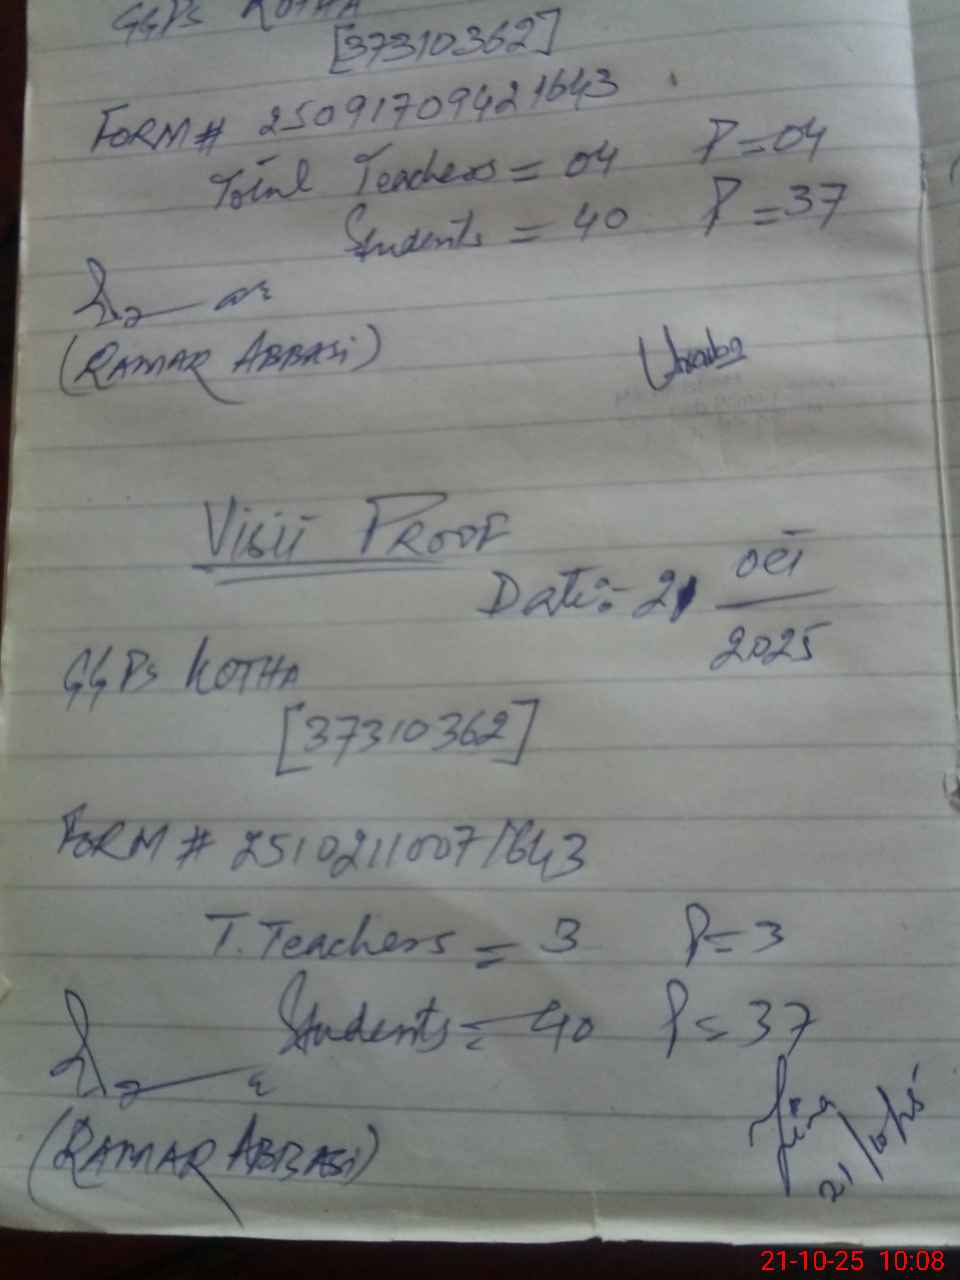 GGPS KOTHA
[37310362]
FORM # 25091709421643
Total Teachers = 04 P = 04
Students = 40 P = 37
(RAMAR ABBASI)
Visit PROOF
Date:- 21 oct
2025
GGPS KOTHA
[37310362]
FORM # 25102110071643
T. Teachers = 3 P = 3
Students = 40 P = 37
(RAMAR ABBASI)
21-10-25 10:08